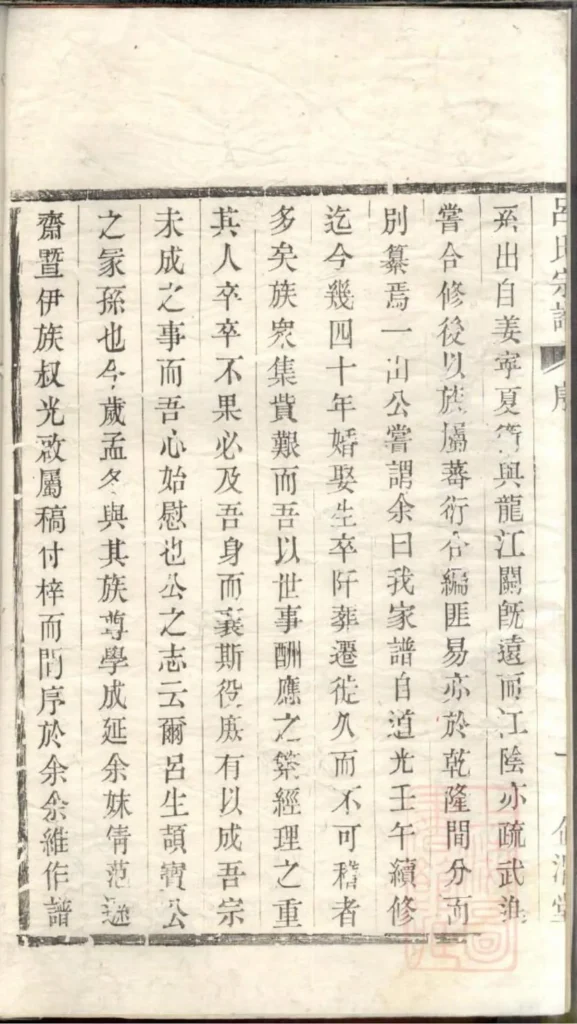 呂氏宗譜 序 一
系出自姜寧夏等與龍江闊既遠而江陰亦疏武進
嘗合修後以族屬蕃衍合編匪易亦於乾隆間分而
別纂焉一山公嘗謂余曰我家譜自道光壬午續修
迄今幾四十年婚娶生卒阡葬遷徙久而不可稽者
多矣族衆集貲艱而吾以世事酬應之繁經理之重
其人卒卒不果必及吾身而襄斯役庶有以成吾宗
未成之事而吾心始慰也公之志云爾呂生頡寶公
之冢孫也今歲孟冬與其族尊學成延余妹倩范遜
齋暨伊族叔光啟屬稿付梓而問序於余余維作譜